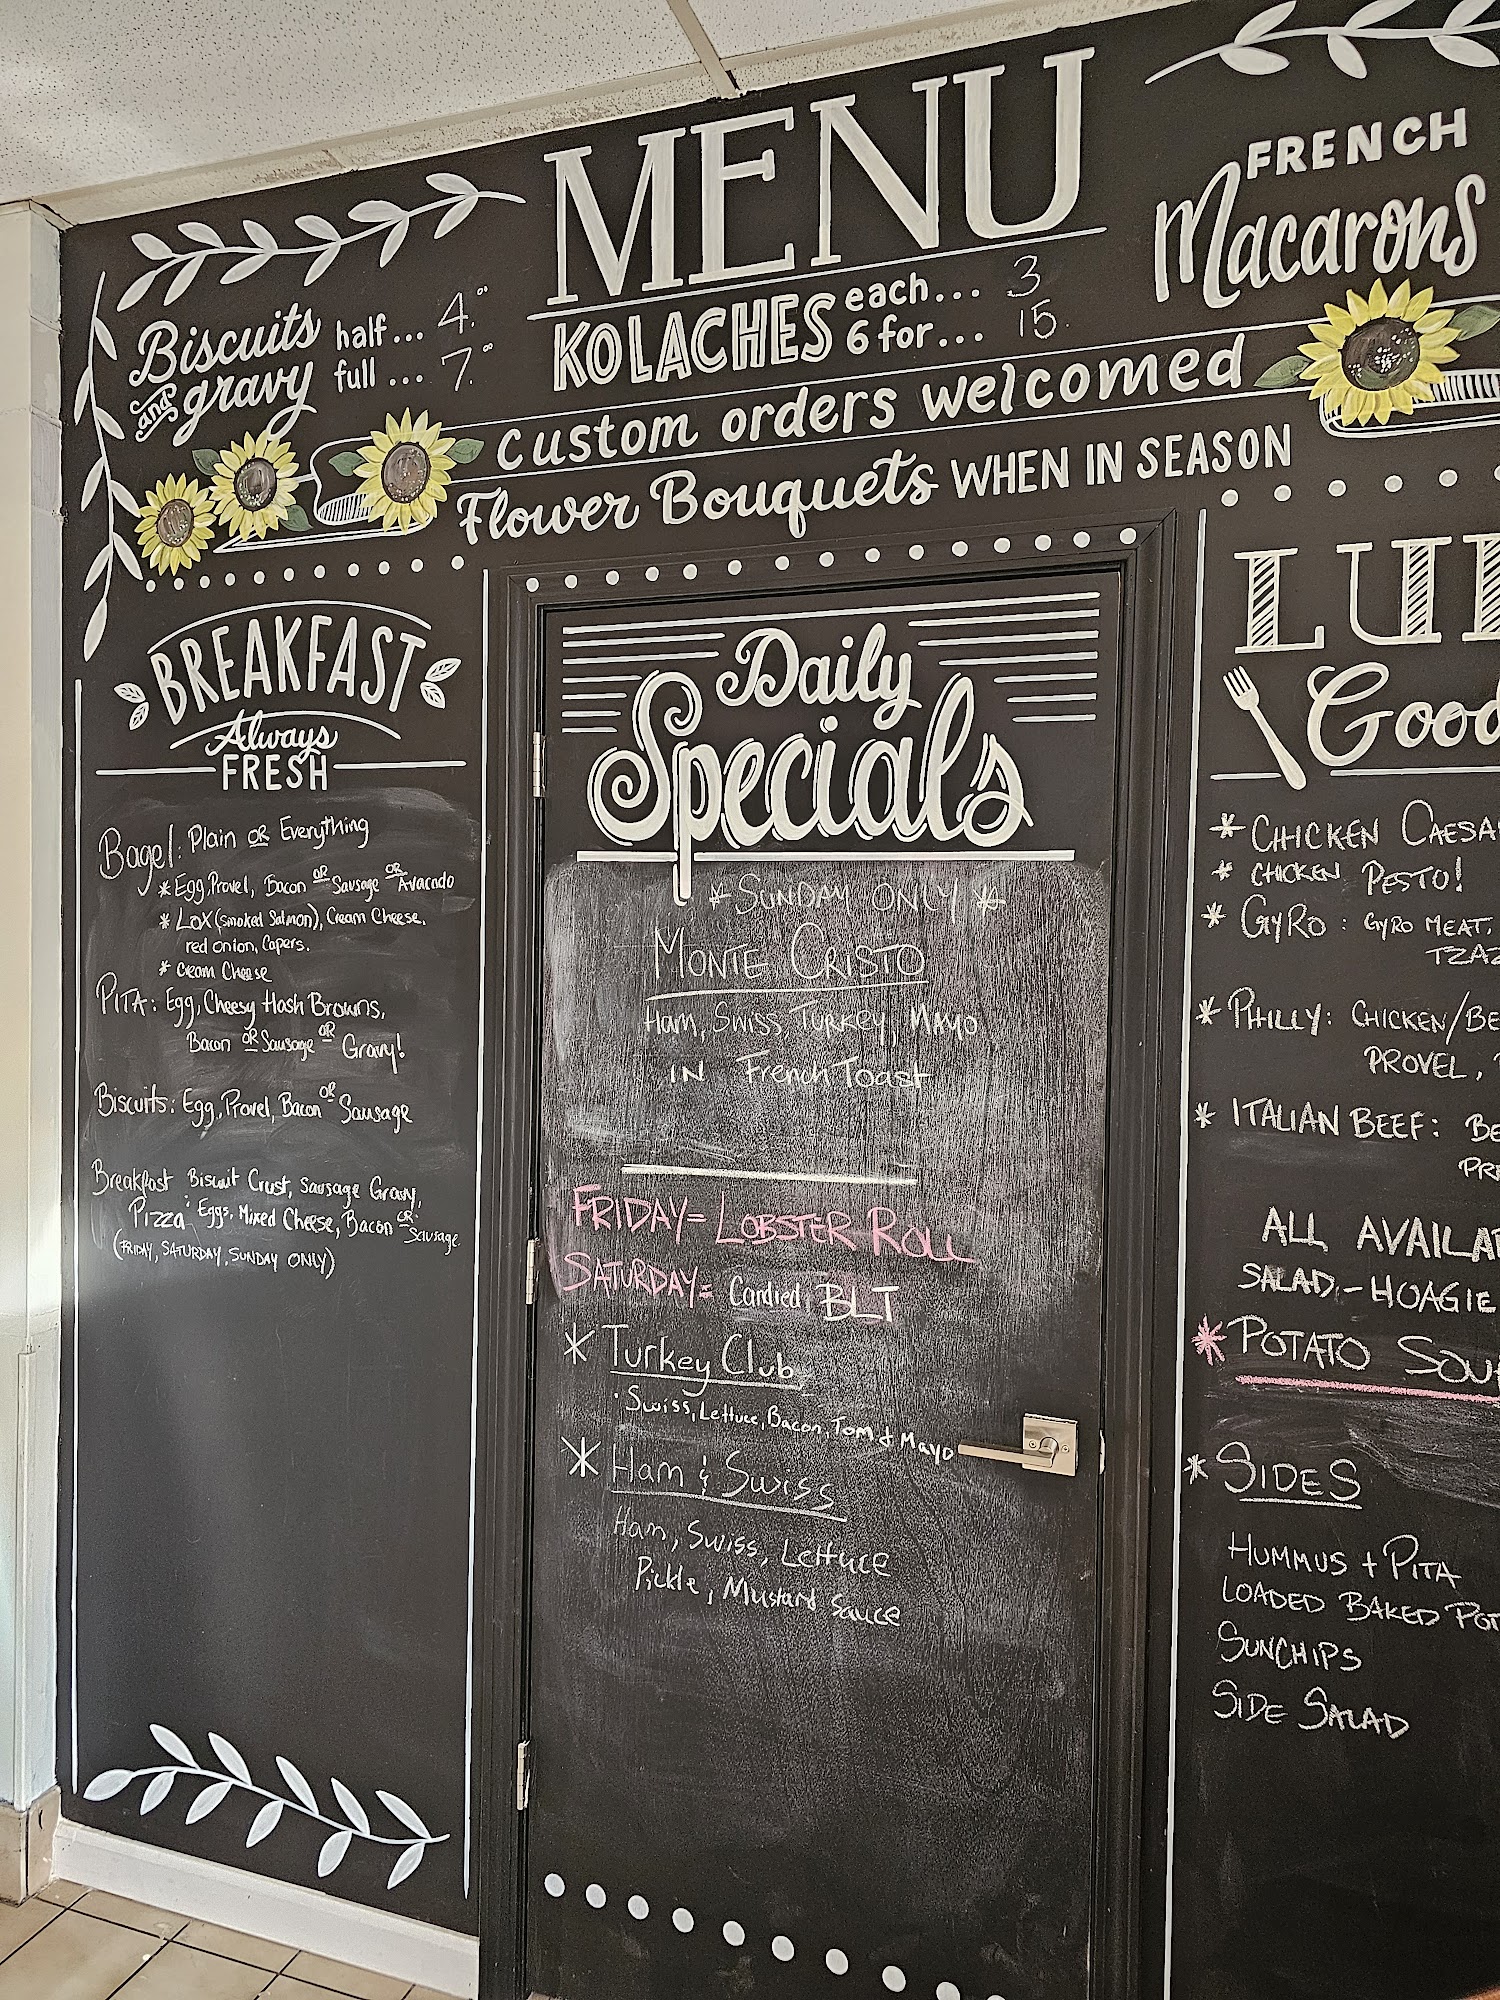 MENU
FRENCH
Macarons
Biscuits and gravy
half... 4.00
full ... 7.00
KOLACHES
each... 3
6 for... 15.
Custom orders welcomed
Flower Bouquets WHEN IN SEASON
BREAKFAST
Always
FRESH
Bagel: Plain OR Everything
* Egg, Provel, Bacon OR Sausage OR Avacado
* LOX (smoked Salmon), Cream Cheese,
red onion, Capers.
* Cream Cheese
PITA: Egg, Cheesy Hash Browns,
Bacon OR Sausage OR Gravy!
Biscuits: Egg, Provel, Bacon OR Sausage
Breakfast Biscuit Crust, Sausage Gravy,
Pizza: Eggs, Mixed Cheese, Bacon OR Sausage
(FRIDAY, SATURDAY, SUNDAY ONLY)
Daily
Specials
* SUNDAY ONLY *
MONTE CRISTO
Ham, Swiss, Turkey, Mayo
IN French Toast
FRIDAY = LOBSTER ROLL
SATURDAY = Candied BLT
* Turkey Club
Swiss, Lettuce, Bacon, Tom & Mayo
* Ham & Swiss
Ham, Swiss, Lettuce
Pickle, Mustard Sauce
Good
* CHICKEN CAESA
* CHICKEN PESTO!
* GYRO: GYRO MEAT,
TZAZ
* PHILLY: CHICKEN/BE
PROVEL,
* ITALIAN BEEF: BE
PR
ALL AVAILA
SALAD - HOAGIE
* POTATO SOU
* SIDES
HUMMUS + PITA
LOADED BAKED POT
SUNCHIPS
SIDE SALAD